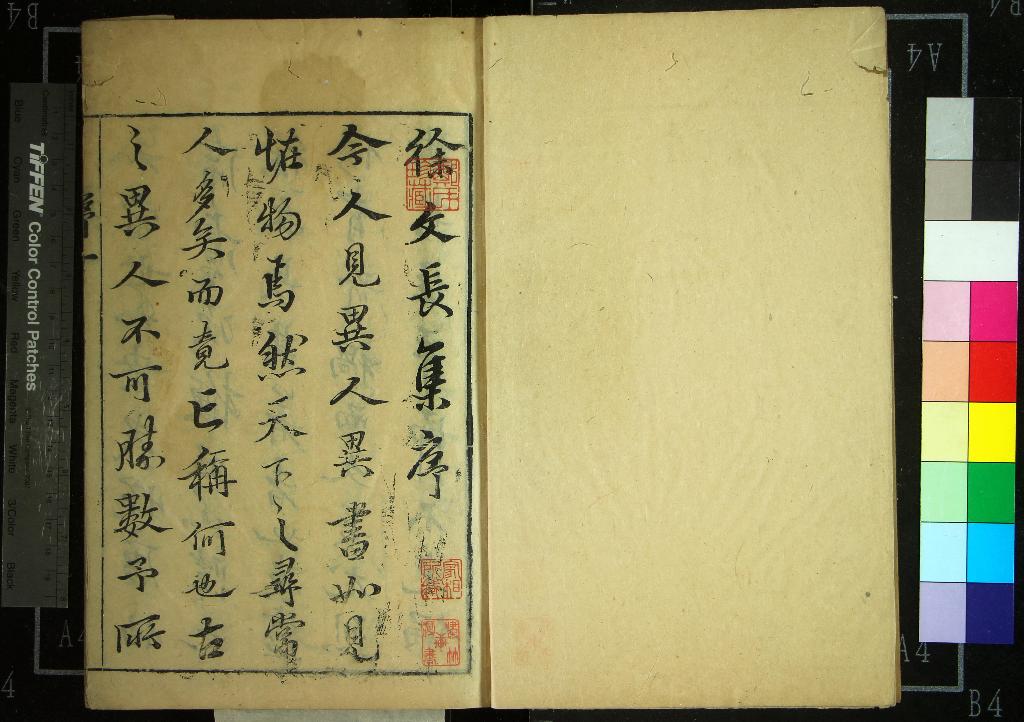 徐文長集序
今人見異人異書如見
恠物焉然天下之尋常
人多矣而竟已稱何也古
之異人不可勝數予所
序 一
TIFFEN Color Control Patches
Blue
Cyan
Green
Yellow
Red
Magenta
White
3/Color
Black
A4
A4
A4
B4
B4
4